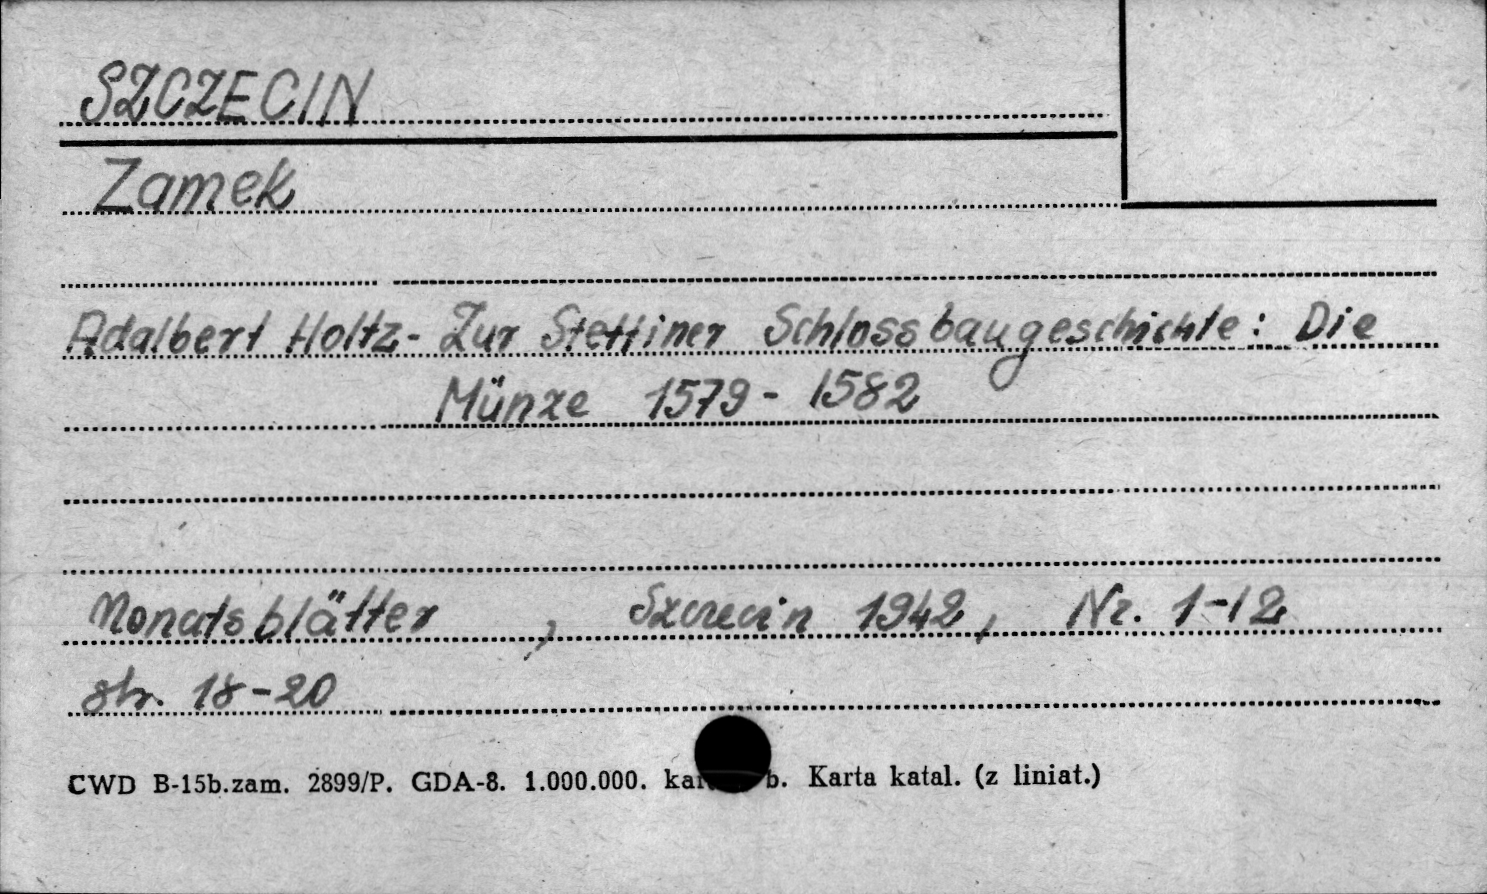 SZCZECIN
Zamek
Adalbert Holtz - Zur Stettiner Schlossbaugeschichte: Die
Münze 1579 - 1582
Monatsblätter, Szczecin 1942, Nr. 1-12
str. 18-20
CWD B-15b.zam. 2899/P. GDA-8. 1.000.000. b. Karta katal. (z liniat.)